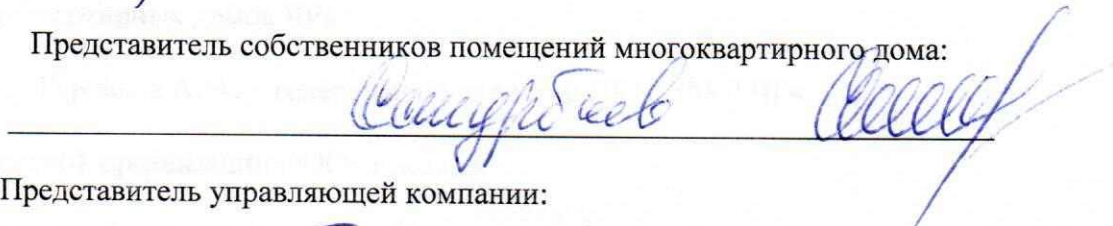 Представитель собственников помещений многоквартирного дома:
Представитель управляющей компании: